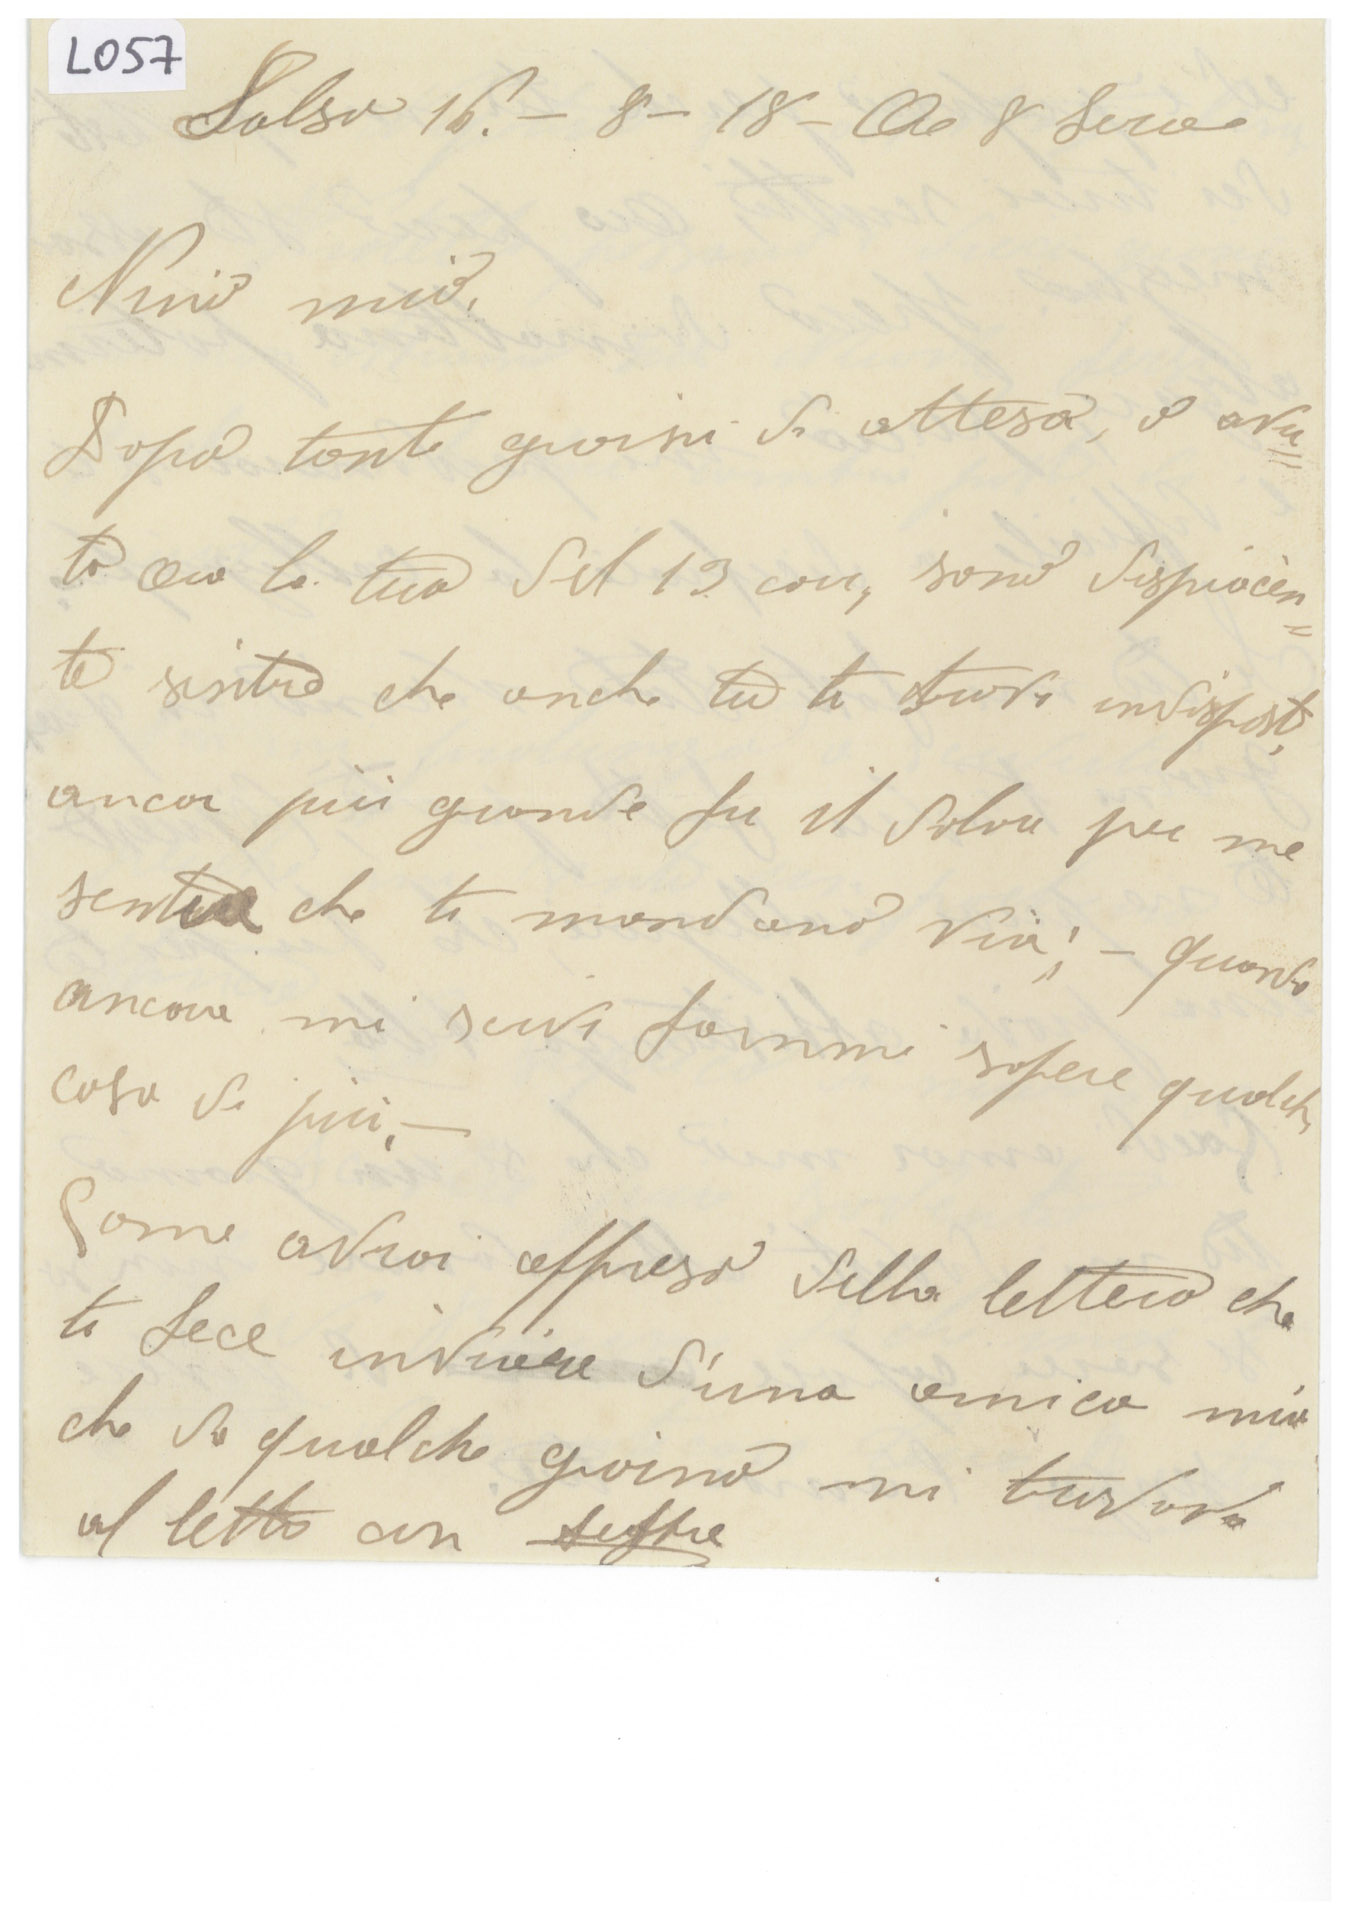 L057
Salso 16.- 8- 18- Ore 8 Sera
Nino mio,
Dopo tanti giorni di attesa, ò avu=
to ora la tua del 13 corr, sono dispiacen=
te sentire che anche tu ti trovi indisposto,
ancor più grande fu il dolor per me
sentire che ti mandano via; - quando
ancora mi scrivi fammi sapere qualche
cosa di più.-
Come avrai appreso dalla lettera che
ti fece inviare d'una amica mia
che da qualche giorno mi trovava
al letto con febbre